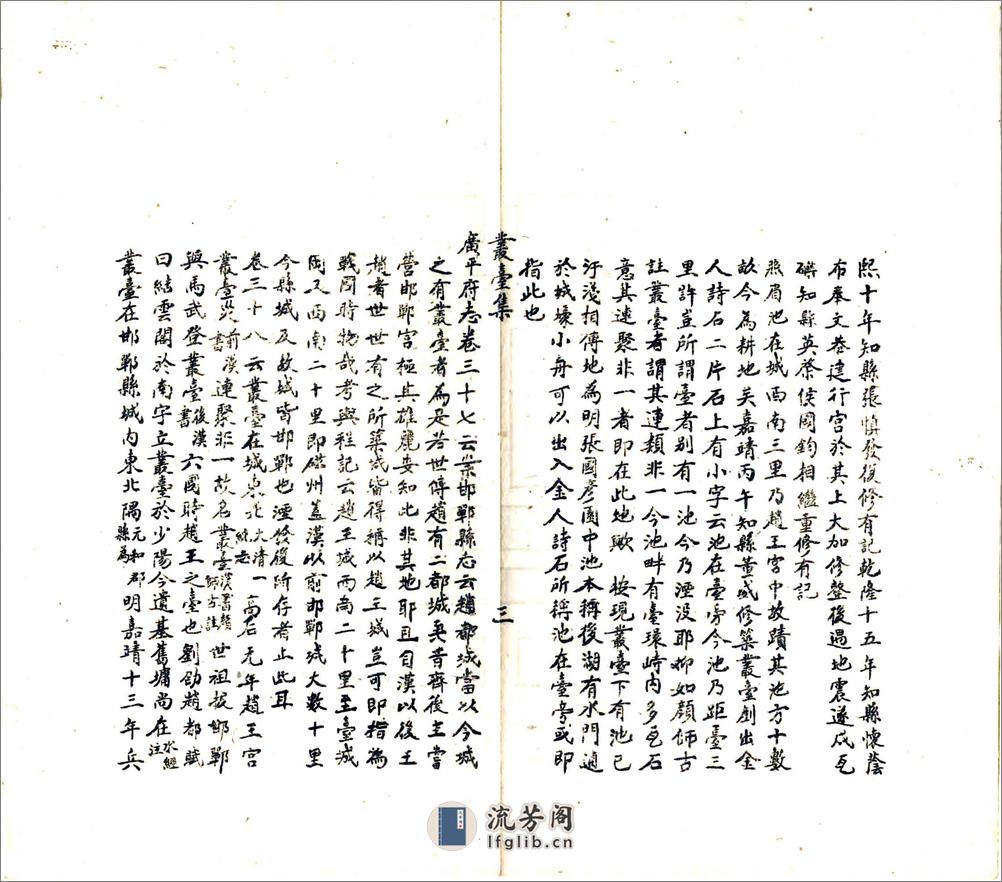 熙十年知縣張慎發復修有記乾隆十五年知縣懷蔭
布奉文恭建行宮於其上大加修整後遇地震遂成瓦
礫知縣英棨侯國鈞相繼重修有記
照眉池在城西南三里乃趙王宮中故蹟其池方十數
畝今為耕地矣嘉靖丙午知縣董威修築叢臺創出金
人詩石二片石上有小字云池在臺旁今池乃距臺三
里許豈所謂臺者別有一池今乃湮沒耶抑如顏師古
註叢臺者謂其連類非一今池畔有臺環峙內多瓦石
意其連聚非一者即在此地歟 按現叢臺下有池已
汙淺相傳地為明張國彥園中池本稱後湖有水門通
於城壕小舟可以出入金人詩石所稱池在臺旁或即
指此也
叢臺集 三
廣平府志卷三十七云案邯鄲縣志云趙都城當以今城
之有叢臺者為是若世傳趙有二都城矣昔齊後主嘗
營邯鄲宮極其雄麗安知此非其地耶且自漢以後王
趙者世世有之所築城皆得稱以趙王城豈可即指為
戰國時物哉考輿程記云趙王城西南二十里至臺城
岡又西南二十里即磁州蓋漢以前邯鄲城大數十里
今縣城及故城皆邯鄲也湮發後所存者止此耳
卷三十八云叢臺在城東北大清一統志高后元年趙王宮
叢臺災前漢書連聚非一故名叢臺漢書顏師古註世祖拔邯鄲
與馬武登叢臺後漢書六國時趙王之臺也劉劭趙都賦
曰結雲閣於南宇立叢臺於少陽今遺基舊墉尚在水經注
叢臺在邯鄲縣城內東北隅元和郡縣志明嘉靖十三年兵
流芳阁
lfglib.cn